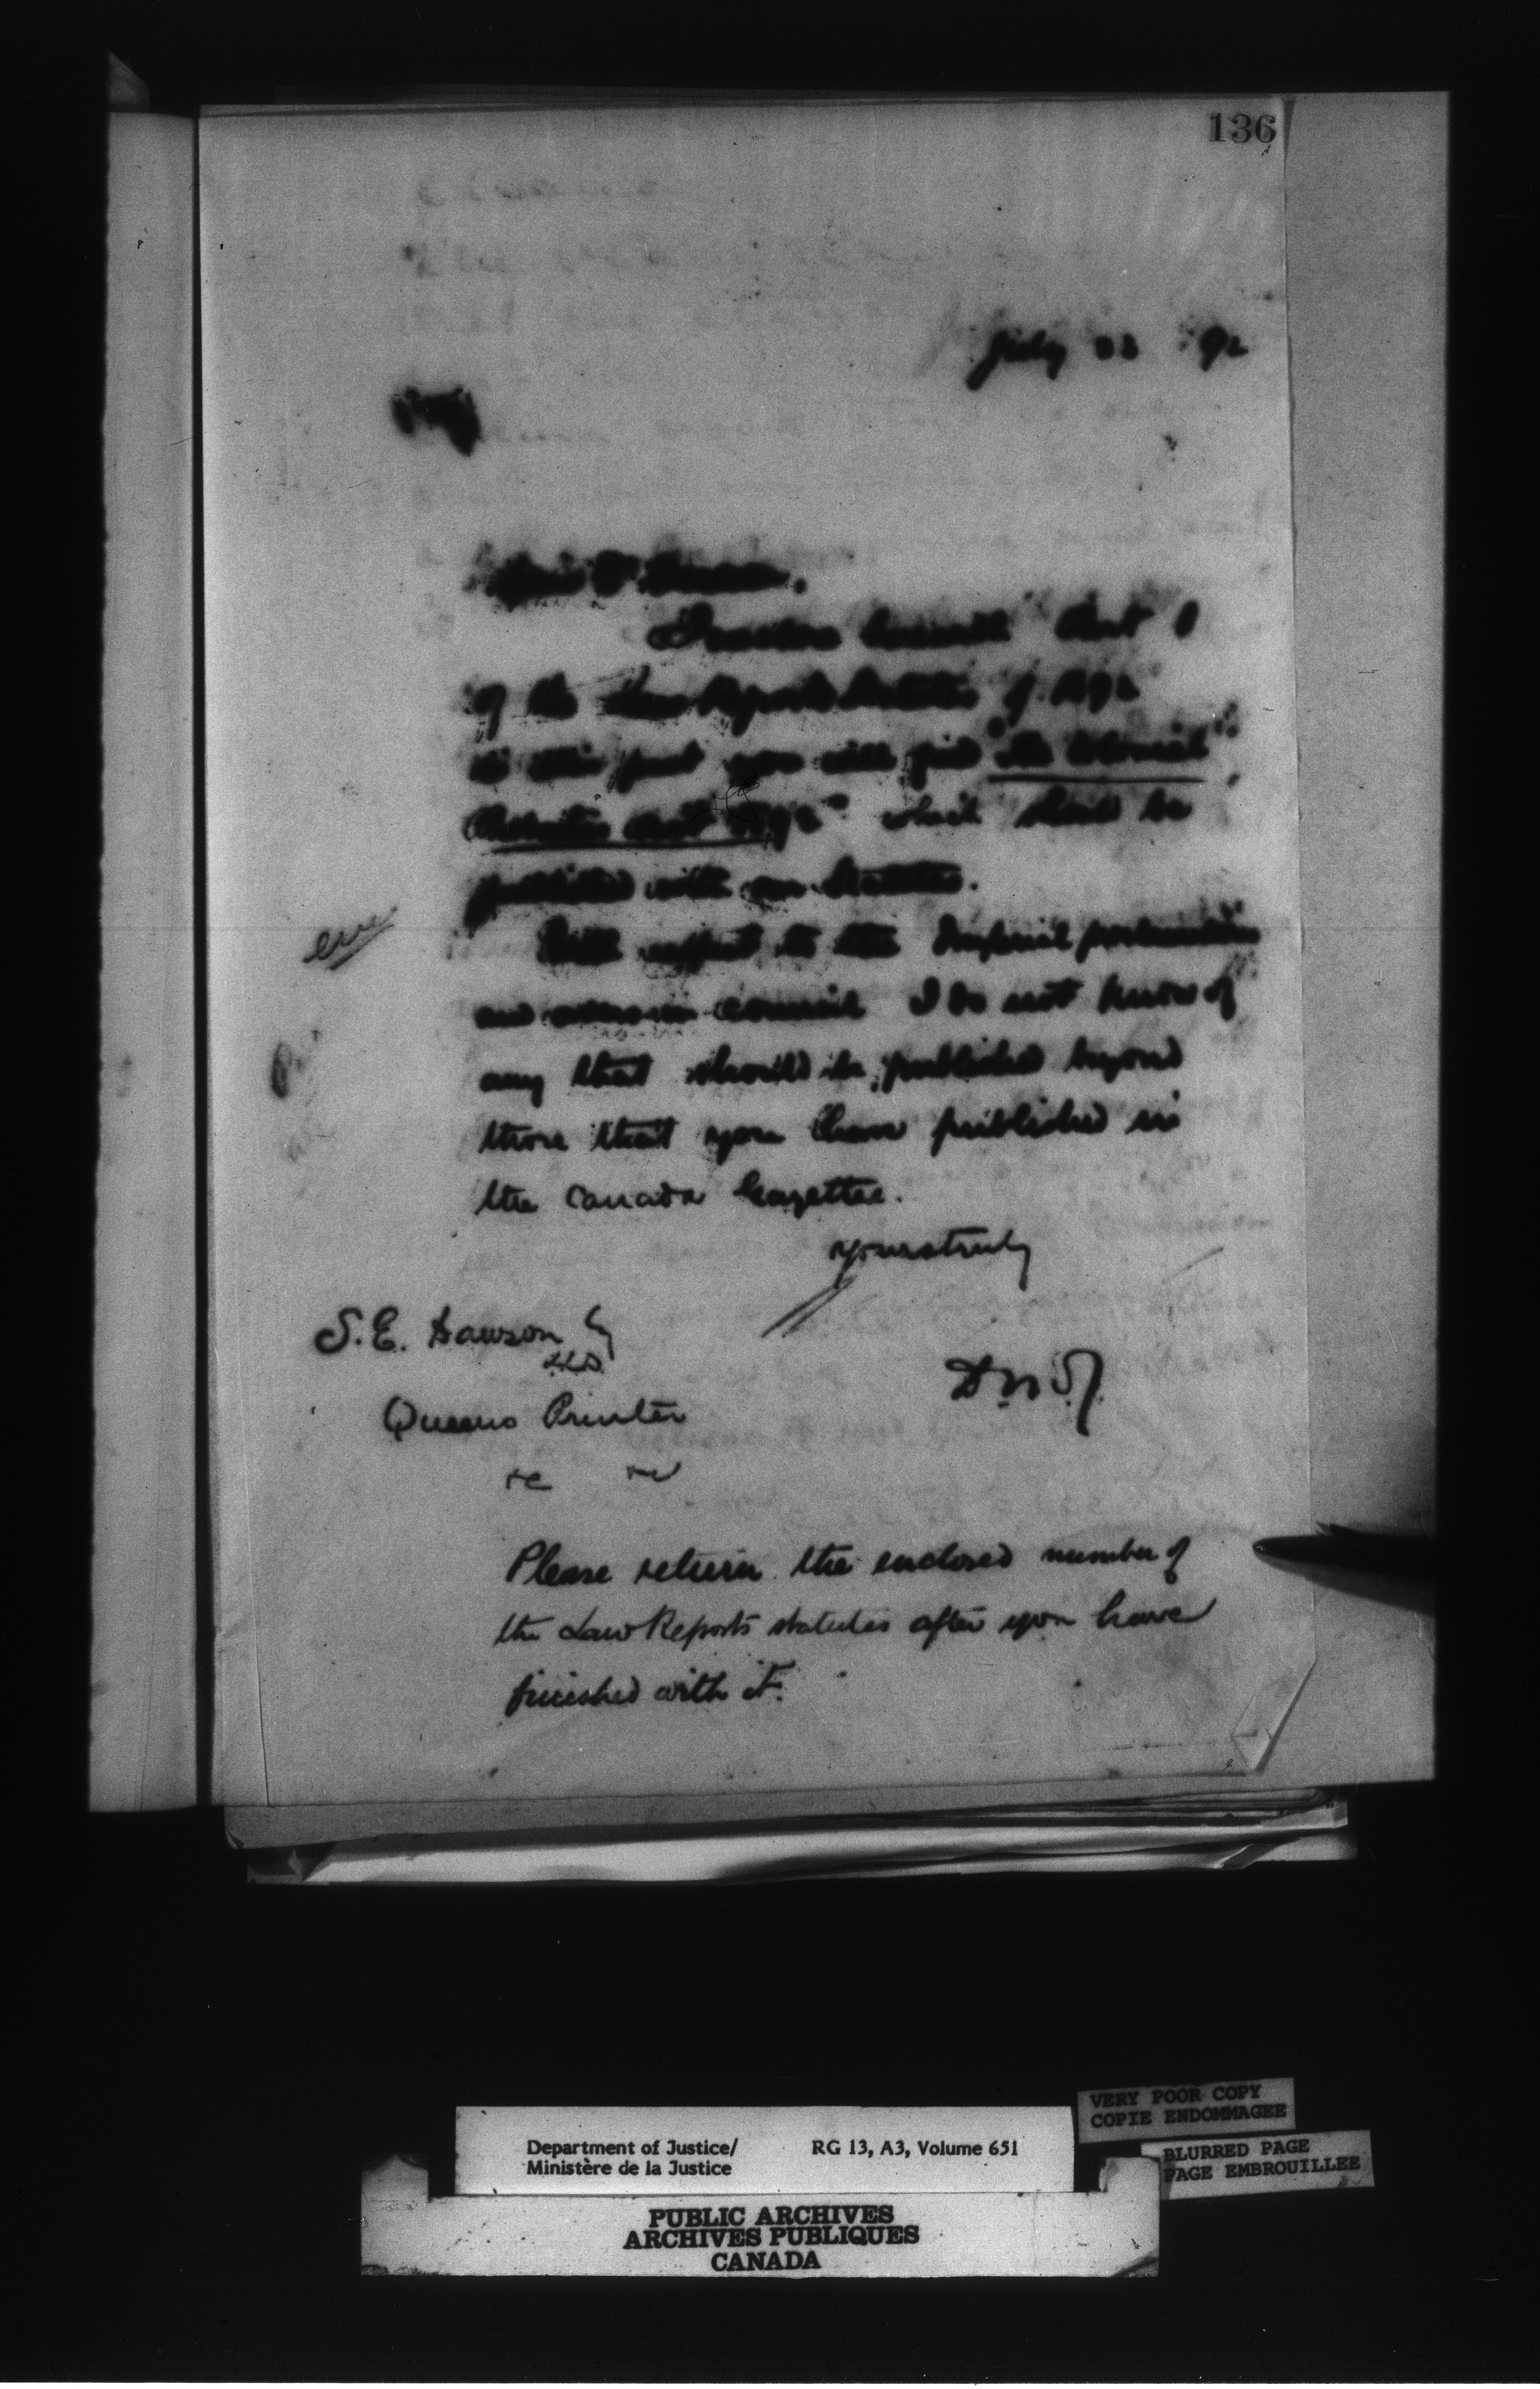 136
July 22 92
Dear Dr Dawson.
I enclose herewith Part 1
of the Law Reports Statutes of 1892
in this part you will find "The Colonial
Probates Act 1892" which should be
published with our Statutes.
With respect to the Imperial proclamations
and orders in council I do not know of
any that should be published beyond
those that you have published in
the Canada Gazette.
yours truly
S. E. Dawson Esq
LLD.
Queens Printer
Please return the enclosed number of
the Law Reports statutes after you have
finished with it.
VERY POOR COPY
COPIE ENDOMMAGEE
BLURRED PAGE
PAGE EMBROUILLEE
Department of Justice/ RG 13, A3, Volume 651
Ministère de la Justice
PUBLIC ARCHIVES
ARCHIVES PUBLIQUES
CANADA